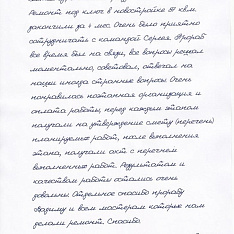 Ремонт под ключ в новостройке 57 кв.м.
закончили за 4 мес. Очень было приятно
сотрудничать с командой Сергея. Прораб
все время был на связи, все вопросы решал
моментально, советовал, отвечал на
наши иногда странные вопросы. Очень
понравилась поэтапная организация и
оплата работы, перед каждым этапом
получали на утверждение смету (перечень)
планируемых работ, после выполнения
этапа, получали акт с перечнем
выполненных работ. Результатом и
качеством работы остались очень
довольны. Отдельное спасибо прорабу
Вадиму и всем мастерам которые нам
делали ремонт. Спасибо.